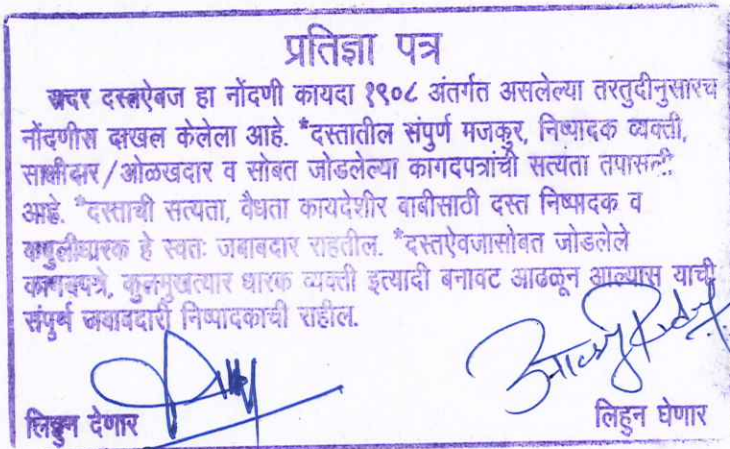 प्रतिज्ञा पत्र
सदर दस्तऐवज हा नोंदणी कायदा १९०८ अंतर्गत असलेल्या तरतुदीनुसारच
नोंदणीस दाखल केलेला आहे. *दस्तातील संपुर्ण मजकुर, निष्पादक व्यक्ती,
साक्षीदार/ओळखदार व सोबत जोडलेल्या कागदपत्रांची सत्यता तपासली
आहे. *दस्ताची सत्यता, वैधता कायदेशीर बाबीसाठी दस्त निष्पादक व
कबुलीधारक हे स्वतः जबाबदार राहतील. *दस्तऐवजासोबत जोडलेले
कागदपत्रे, कुलमुखत्यार धारक व्यक्ती इत्यादी बनावट आढळून आल्यास याची
संपुर्ण जबाबदारी निष्पादकाची राहील.
लिहुन देणार
लिहुन घेणार